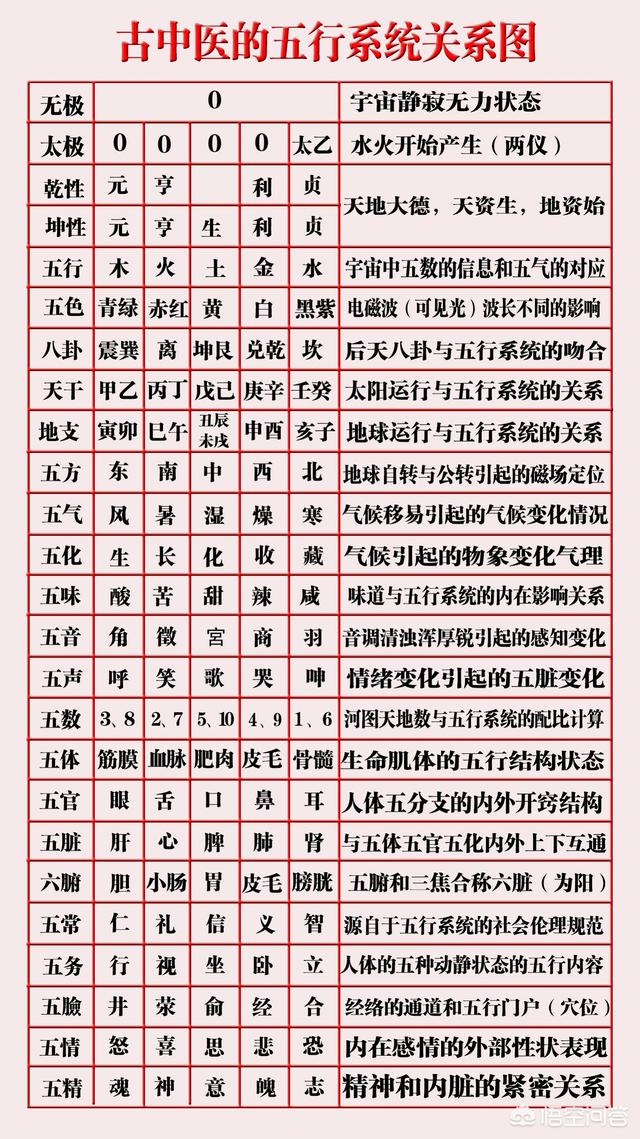 古中医的五行系统关系图
无极 0 宇宙静寂无力状态
太极 0 0 0 0 太乙 水火开始产生（两仪）
乾性 元 亨 利 贞
天地大德，天资生，地资始
坤性 元 亨 生 利 贞
五行 木 火 土 金 水 宇宙中五数的信息和五气的对应
五色 青绿 赤红 黄 白 黑紫 电磁波（可见光）波长不同的影响
八卦 震巽 离 坤艮 兑乾 坎 后天八卦与五行系统的吻合
天干 甲乙 丙丁 戊己 庚辛 壬癸 太阳运行与五行系统的关系
地支 寅卯 巳午 丑辰未戌 申酉 亥子 地球运行与五行系统的关系
五方 东 南 中 西 北 地球自转与公转引起的磁场定位
五气 风 暑 湿 燥 寒 气候移易引起的气候变化情况
五化 生 长 化 收 藏 气候引起的物象变化气理
五味 酸 苦 甜 辣 咸 味道与五行系统的内在影响关系
五音 角 徵 宫 商 羽 音调清浊浑厚锐引起的感知变化
五声 呼 笑 歌 哭 呻 情绪变化引起的五脏变化
五数 3、8 2、7 5、10 4、9 1、6 河图天地数与五行系统的配比计算
五体 筋膜 血脉 肥肉 皮毛 骨髓 生命肌体的五行结构状态
五官 眼 舌 口 鼻 耳 人体五分支的内外开窍结构
五脏 肝 心 脾 肺 肾 与五体五官五化内外上下互通
六腑 胆 小肠 胃 皮毛 膀胱 五腑和三焦合称六脏（为阳）
五常 仁 礼 信 义 智 源自于五行系统的社会伦理规范
五务 行 视 坐 卧 立 人体的五种动静状态的五行内容
五臉 井 荥 俞 经 合 经络的通道和五行门户（穴位）
五情 怒 喜 思 悲 恐 内在感情的外部性状表现
五精 魂 神 意 魄 志 精神和内脏的紧密关系
悟空问答